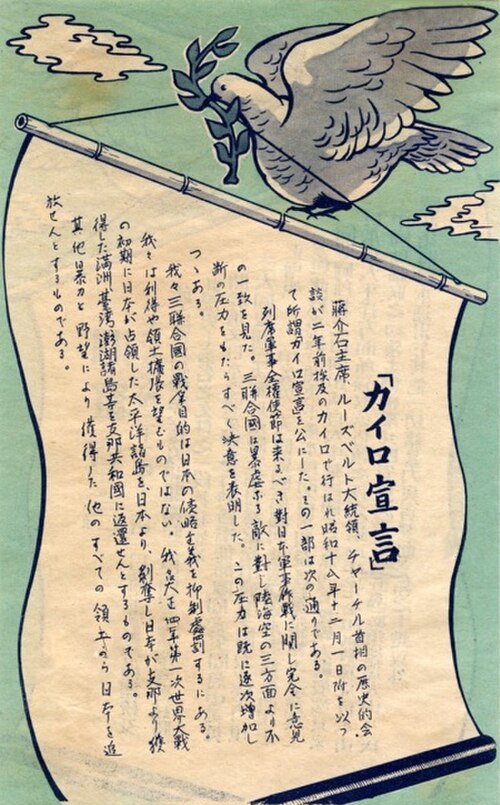 「カイロ宣言」
蔣介石主席、ルーズベルト大統領、チャーチル首相の歴史的会
談が二年前埃及のカイロで行はれ昭和十八年十二月一日附を以つ
て所謂カイロ宣言を公にした。その一部は次の通りである。
列席軍事全權使節は來るべき對日本軍事作戰に関し完全に意見
の一致を見た。三聯合國は暴虐なる敵に對し陸海空の三方面より不
断の圧力をもたらすべく決意を表明した。この圧力は既に逐次増加し
つゝある。
我々三聯合國の戰争目的は日本の侵略主義を抑制處罰するにある。
我々は利得や領土擴張を望むものではない。我々は大正四年第一次世界大戰
の初期に日本が占領した太平洋諸島を、日本より剝奪し日本が支那より獲
得した満洲臺湾澎湖諸島等を支那共和國に返還せんとするものである。
其他暴力と野望により獲得した他のすべての領土から日本を追
放せんとするものである。